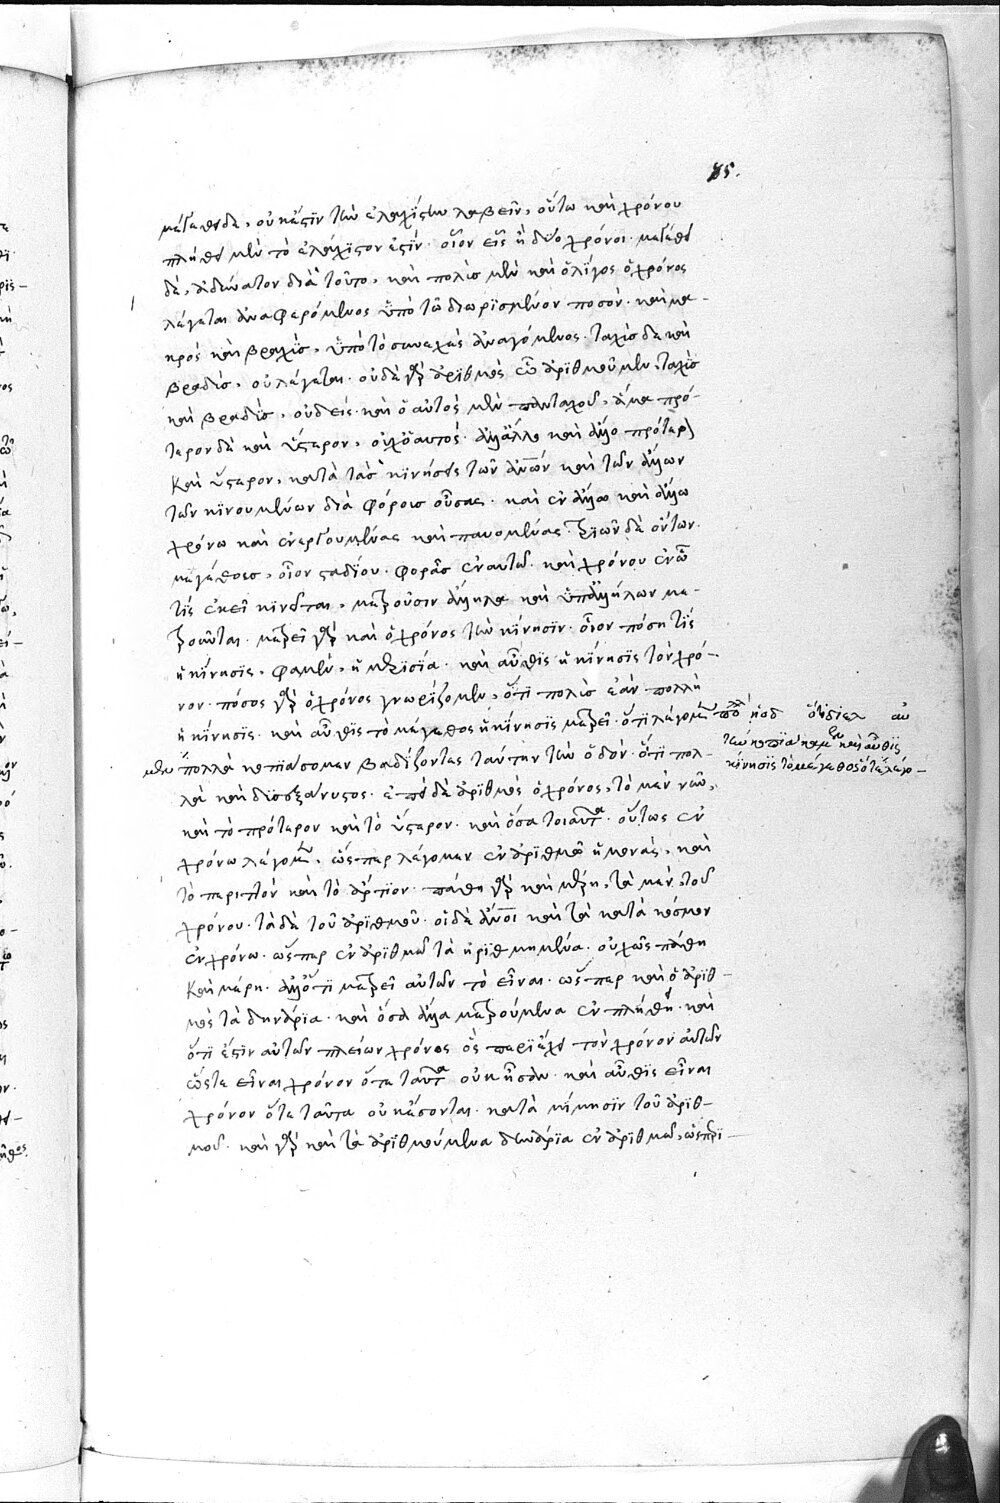 85.
μεγέθει δὲ, οὐκ ἔστιν τὴν ἐλαχίστην λαβεῖν, οὕτω καὶ χρόνου
πλήθει μὲν τὸ ἐλάχιστον ἐστίν· οἷον εἷς ἢ δύο χρόνοι· μεγέθει
δὲ, ἀδύνατον διὰ τοῦτο, καὶ πολὺς μὲν καὶ ὀλίγος ὁ χρόνος
λέγεται ἀναφερόμενος ὑπὸ τῶ διωρισμένον ποσόν· καὶ μα-
κρὸς καὶ βραχὺς, ὑπὸ τὸ συνεχὲς ἀναγόμενος· ταχὺς δὲ καὶ
βραδὺς, οὐ λέγεται· οὐδὲ γὰρ ἀριθμὸς ὧ ἀριθμοῦμεν, ταχὺς
καὶ βραδὺς, οὐδείς· καὶ ὁ αὐτὸς μὲν πανταχοῦ, ἅμα πρό-
τερον δὲ καὶ ὕστερον, οὐχ ὁ αυτός· ἀλλ' ἄλλο καὶ ἄλλο πρότερ
καὶ ὕστερον, κατὰ τὰς κινήσεις τῶν ἀνων καὶ τῶν ἄλλων
τῶν κινουμένων διὰ φόροις οὔσας· καὶ ἐν ἄλλω καὶ ἄλλω
χρόνω καὶ ἐνεργουμένας καὶ παυομένας· τριῶν δὲ ὄντων·
μεγέθους, οἷον σταδίου· φορᾶς ἐν αυτῶ· καὶ χρόνου ἐν ὧ
τίς ἐκεῖ κινεῖται, μετροῦσιν ἄλληλα καὶ ὑπ' ἀλλήλων με-
τροῦνται· μετρεῖ γὰρ καὶ ὁ χρόνος τὴν κίνησιν· οἷον πόση τίς
ἡ κίνησις, φαμὲν, ἡμερισία· καὶ αὖθις ἡ κίνησις τὸν χρό-
νον· πόσος γὰρ ὁ χρόνος γνωρίζομεν, ὅτι πολὺς ἐὰν πολλὴ
ἡ κίνησις· καὶ αὖθις τὸ μέγεθος ἡ κίνησις μετρεῖ· ὅτι λέγομεν
μεν πολλὰ κοπιάσομεν βαδίζοντας ταύτην τὴν ὁδὸν· ὅτι πολ-
τὴν καὶ αὖθις
κίνησις τὸ μέγεθος ὅτε λέγο-
λὴ καὶ δυσεξάνυτος· ἐπεὶ δὲ ἀριθμὸς ὁ χρόνος, τὸ μὲν νῦν,
καὶ τὸ πρότερον καὶ τὸ ὕστερον· καὶ ὅσα τοιαῦτα· οὕτως ἐν
χρόνω λέγομεν, ὥσπερ λέγομεν ἐν ἀριθμῶ ἡ μονὰς, καὶ
τὸ περιττὸν καὶ τὸ ἄρτιον· πάθη γὰρ καὶ μέρη, τὰ μὲν, τοῦ
χρόνου· τὰ δὲ τοῦ ἀριθμοῦ· οἱ δὲ ἄνοι καὶ τὰ κατὰ κόσμον
ἐν χρόνω· ὥσπερ ἐν ἀριθμῶ τὰ ἠριθμημένα· οὐχ ὡς πάθη
καὶ μέρη· ἀλλ' ὅτι μετρεῖ αὐτῶν τὸ εἶναι· ὥσπερ καὶ ὁ ἀριθ-
μὸς τὰ δηνάρια· καὶ ὅσα ἄλλα μετρούμενα ἐν πλήθει· καὶ
ὅτι ἐστὶν αὐτῶν πλείων χρόνος ὃς περιέχει τὸν χρόνον αὐτῶν
ὥστε εἶναι χρόνον ὅτε ταῦτα οὐκ ἦσαν· καὶ αὖθις εἶναι
χρόνον ὅτε ταῦτα οὐκ ἔσονται· κατὰ μίμησιν τοῦ ἀριθ-
μοῦ· καὶ γὰρ καὶ τὰ ἀριθμούμενα δηνάρια ἐν ἀριθμῶ, ὡς περι-